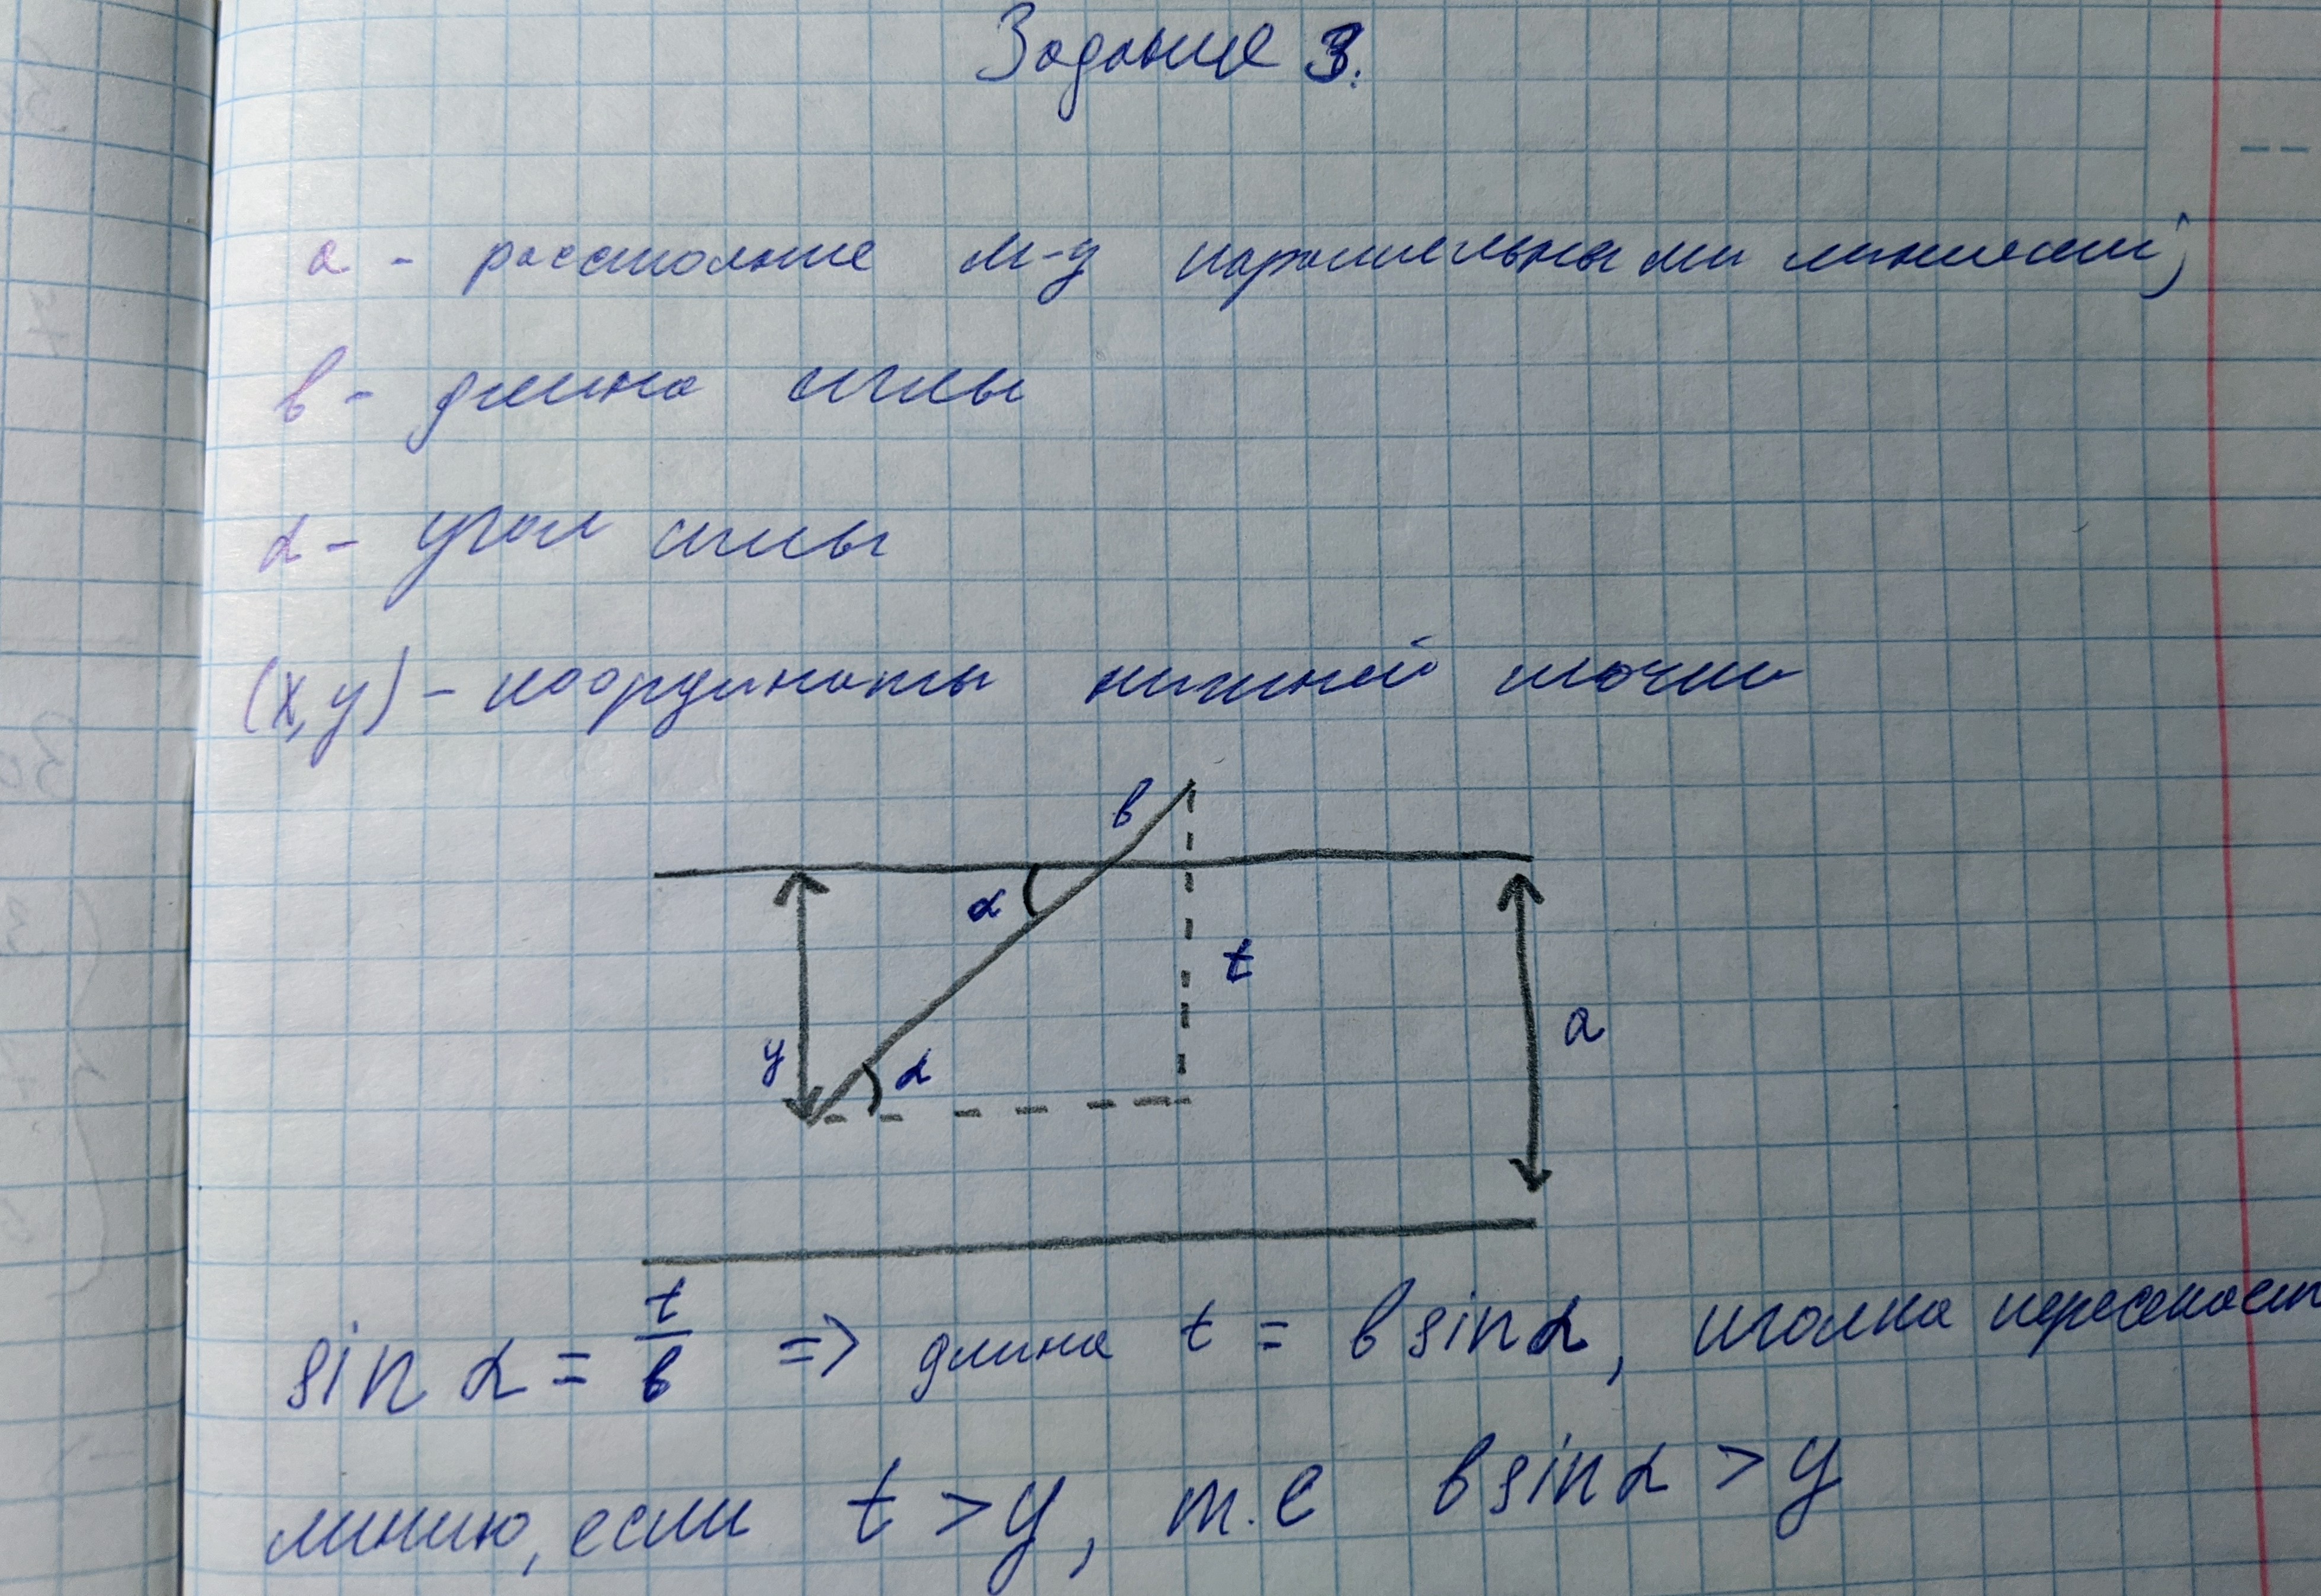 Задание 3.
a - расстояние м-д параллельными линиями;
b - длина иглы
α - угол иглы
(x,y) - координаты нижней точки
b
α
t
a
y
α
sin α = t/b => длина t = b sin α, иголка пересекает
линию, если t > y, т.е b sin α > y